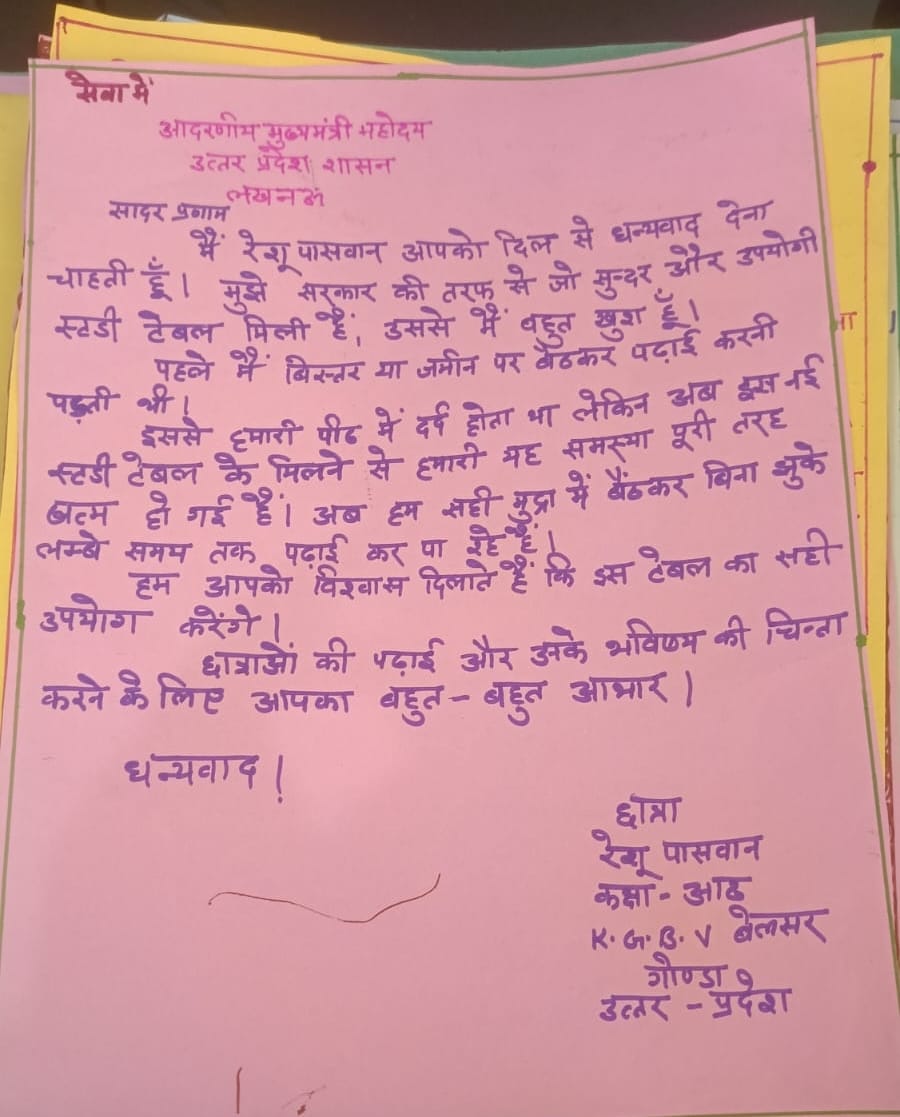 सेवा में
आदरणीय मुख्यमंत्री महोदय
उत्तर प्रदेश शासन
लखनऊ
सादर प्रणाम
मैं रेशू पासवान आपको दिल से धन्यवाद देना
चाहती हूँ। मुझे सरकार की तरफ से जो सुन्दर और उपयोगी
स्टडी टेबल मिली हैं, उससे मैं बहुत खुश हूँ।
पहले मैं बिस्तर या जमीन पर बैठकर पढ़ाई करनी
पड़ती थी।
इससे हमारी पीठ में दर्द होता था लेकिन अब इस नई
स्टडी टेबल के मिलने से हमारी यह समस्या पूरी तरह
खत्म हो गई हैं। अब हम सही मुद्रा में बैठकर बिना झुके
लम्बे समय तक पढ़ाई कर पा रहे हैं।
हम आपको विश्वास दिलाते हैं कि इस टेबल का सही
उपयोग करेंगे।
छात्राओं की पढ़ाई और उनके भविष्य की चिन्ता
करने के लिए आपका बहुत-बहुत आभार।
धन्यवाद!
छात्रा
रेशू पासवान
कक्षा - आठ
K.G.B.V बेलसर
गोण्डा
उत्तर - प्रदेश